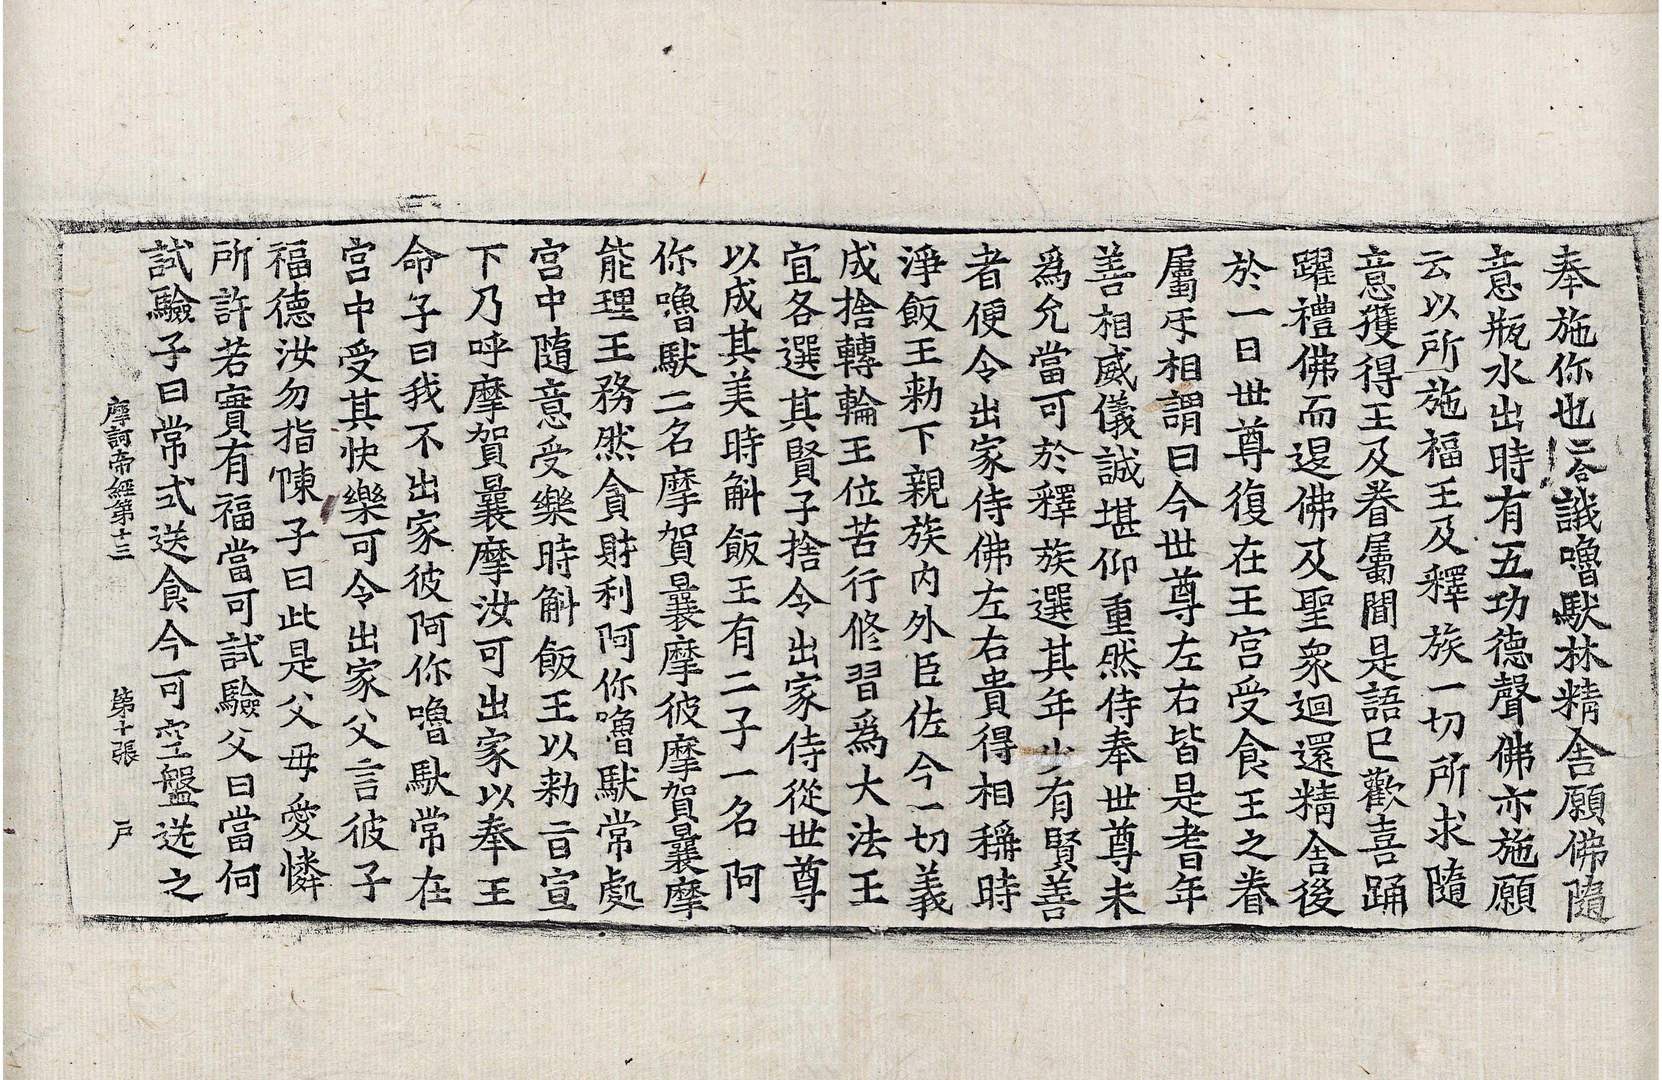 奉施你也二合誐嚕馱林精舍願佛隨
意瓶水出時有五功德聲佛亦施願
云以所施福王及釋族一切所求隨
意獲得王及眷屬聞是語已歡喜踊
躍禮佛而退佛及聖衆迴還精舍後
於一日世尊復在王宮受食王之眷
屬㸦相謂曰今世尊左右皆是耆年
善相威儀誠堪仰重然侍奉世尊未
爲允當可於釋族選其年少有賢善
者便令出家侍佛左右貴得相稱時
淨飯王勑下親族内外臣佐今一切義
成捨轉輪王位苦行修習爲大法王
宜各選其賢子捨令出家侍從世尊
以成其美時斛飯王有二子一名阿
你嚕馱二名摩賀曩摩彼摩賀曩摩
能理王務然貪財利阿你嚕馱常處
宮中隨意受樂時斛飯王以勑言宣
下乃呼摩賀曩摩汝可出家以奉王
命子曰我不出家彼阿你嚕馱常在
宮中受其快樂可令出家父言彼子
福德汝勿指陳子曰此是父母愛憐
所許若實有福當可試驗父曰當何
試驗子曰常式送食今可空盤送之
摩訶帝經第十三 第十張 戸